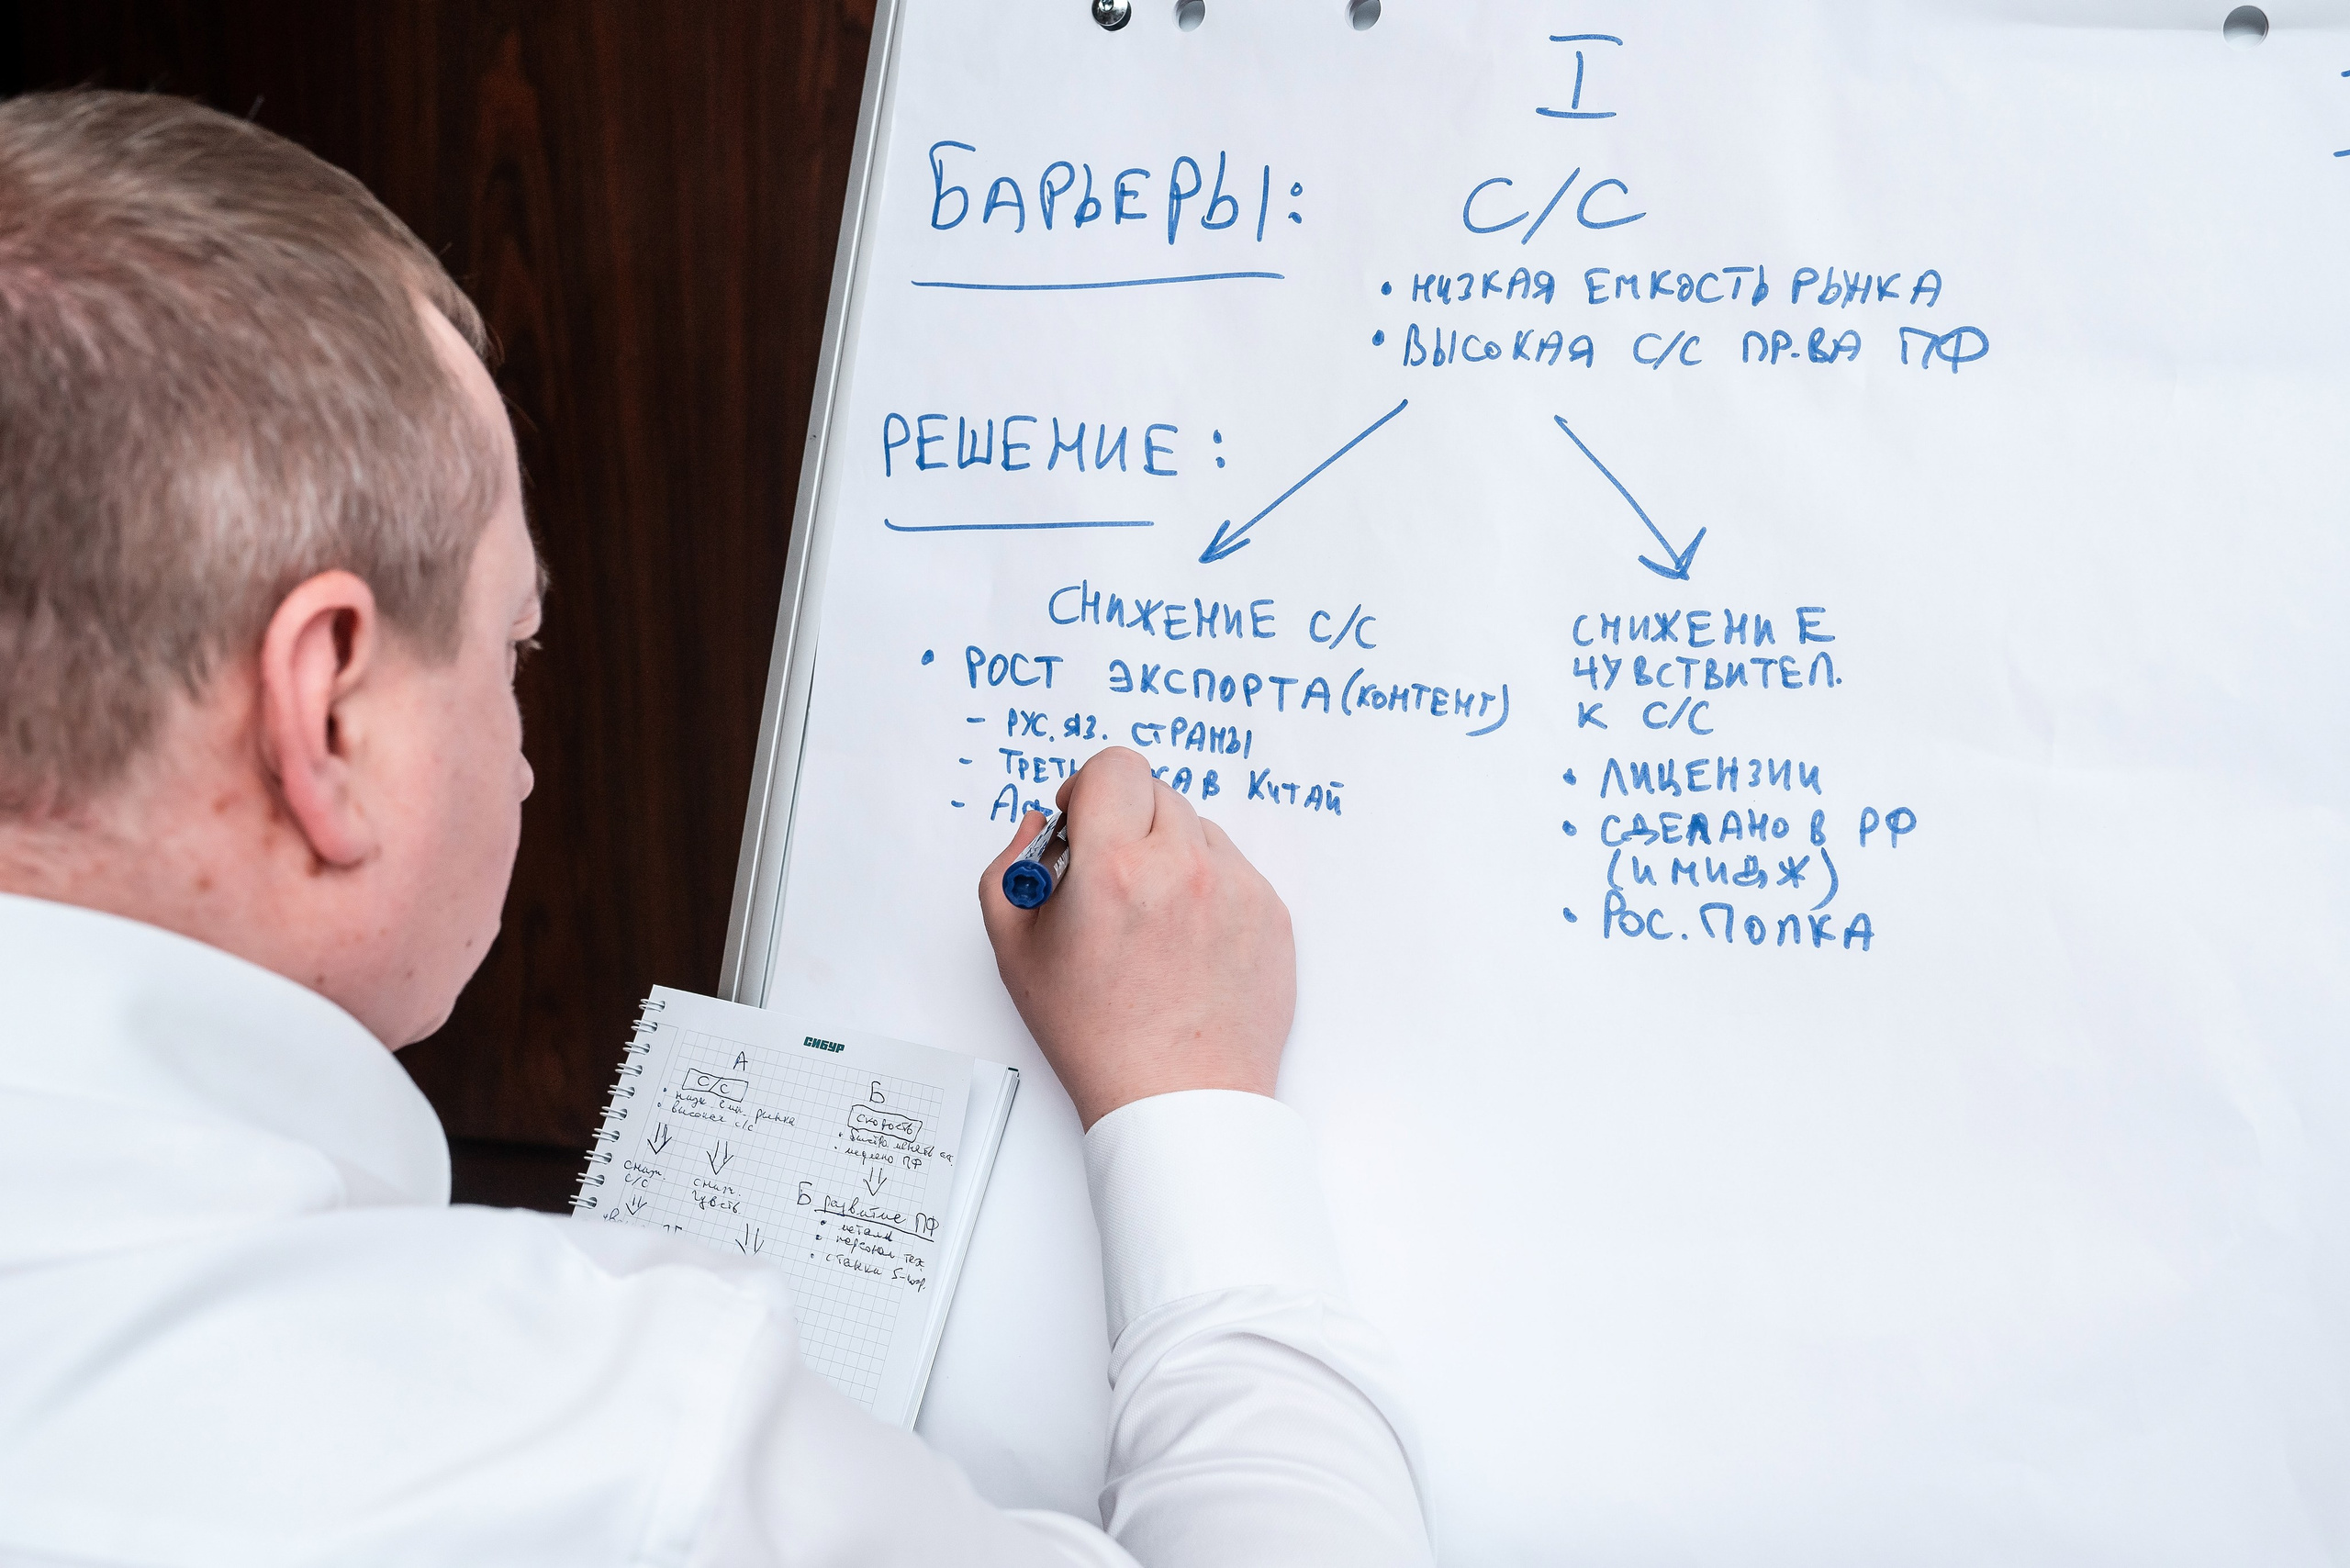 I
БАРЬЕРЫ: С/С
• НИЗКАЯ ЕМКОСТЬ РЫНКА
• ВЫСОКАЯ С/С ПР-ВА ПФ
РЕШЕНИЕ:
СНИЖЕНИЕ С/С
• РОСТ ЭКСПОРТА (КОНТЕНТ)
- РУС. ЯЗ. СТРАНЫ
- В КИТАЙ
СНИЖЕНИЕ
ЧУВСТВИТЕЛ.
К С/С
• ЛИЦЕНЗИИ
• СДЕЛАНО В РФ
(ИМИДЖ)
• РОС. ПОЛКА
СИБУР
А
С/С
• низк. рынка
• высокая с/с
сниж.
С/С
сниж.
чувств.
Б
скорость
• быстро менять
• медлено ПФ
Б развитие ПФ
• металл
• персонал тех.
• станки 5-коор.